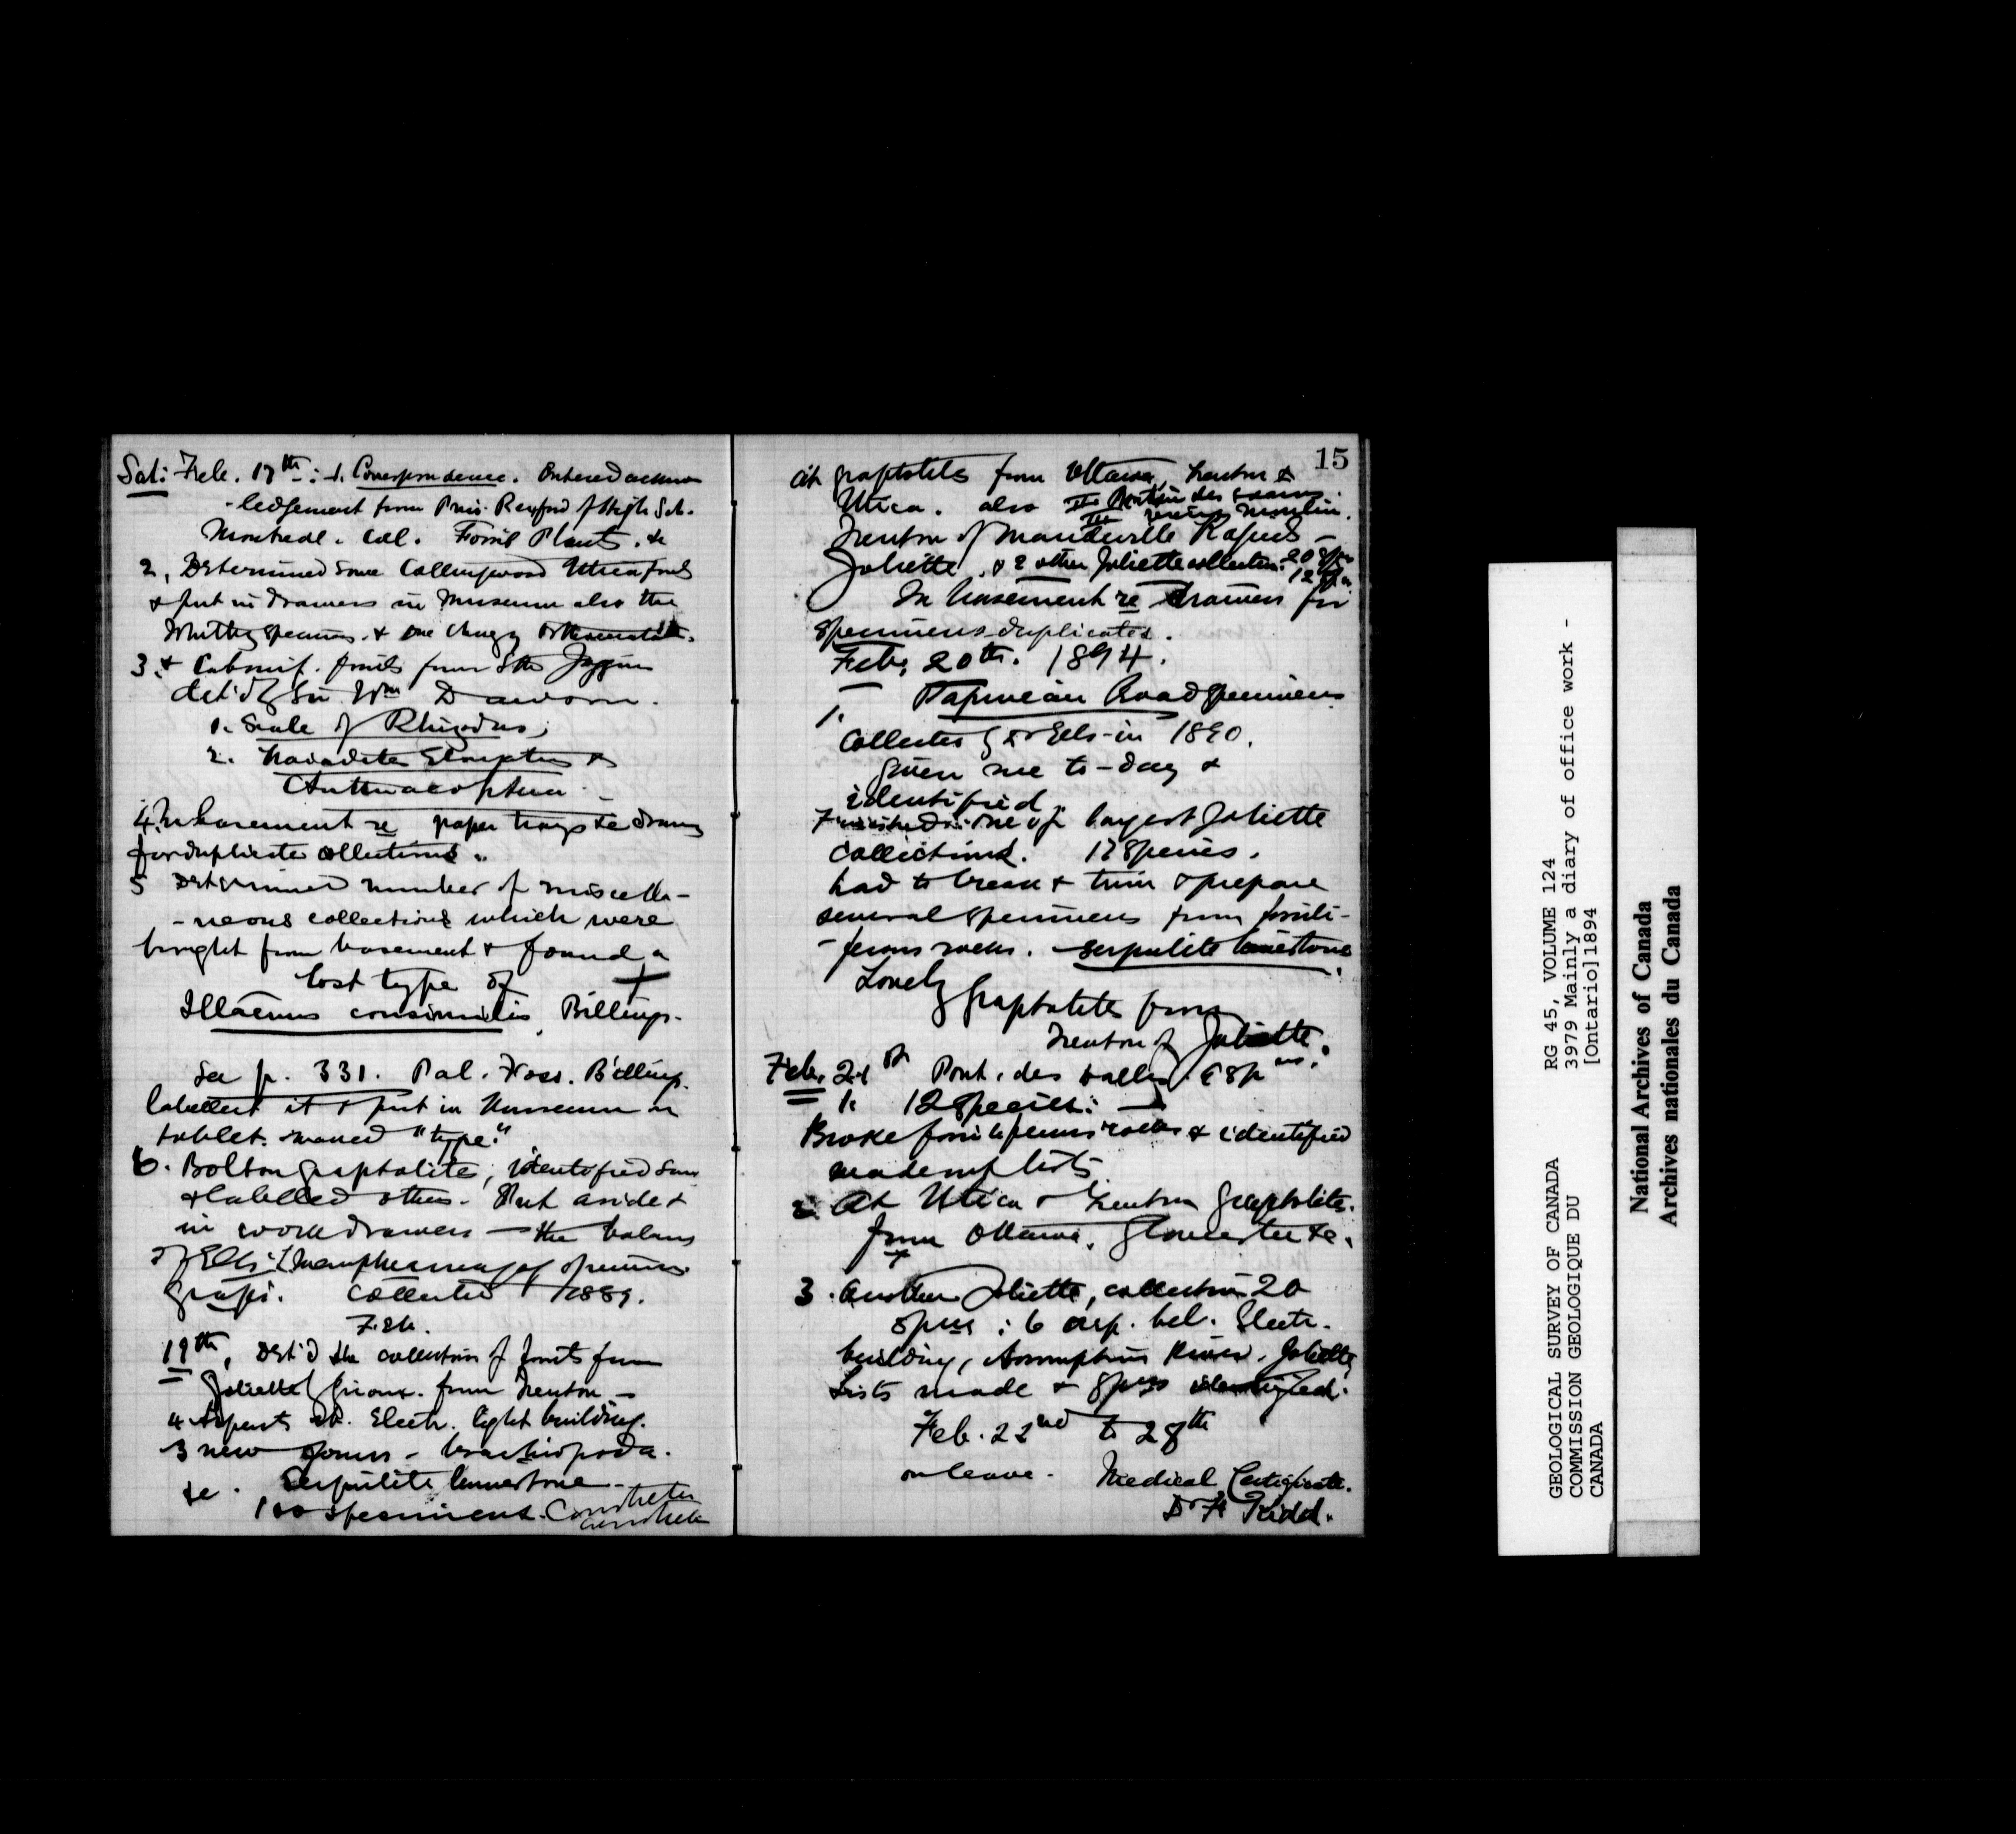 Sat: Feb. 17th: 1. Correspondence. Ordered acknow
-ledgement from Prin. Rexford of High Sch.
Montreal. Col. Fossil Plants. &c
2, Determined some Collingwood Utica fossils
& put in drawers in Museum also the
Whitby specimens. & one
3. & Carbonif. fossils from Sth Joggins
det'd by Sir Wm Dawson.
1. Scale of Rhizodus;
2. Naiadites Elongatus &
Anthracoptera.
4. In basement re paper trays &c drawers
for duplicate collections.
5 Determined number of miscella-
-neous collections which were
brought from basement & found a
lost type of
Illaenus consimilis, Billings.
See p. 331. Pal. Foss. Billings.
labelled it & put in Museum on
tablet. marked "type."
6. Bolton graptolite, identified some
& labelled others. Put aside &
in work drawers — the balance
of Ells' Memphremagog specimens
Grapt. collected 1889.
Feb.
19th, Det'd the collection of fossils from
Joliette from Trenton —
4 Serpents at. Electr. light building.
3 new forms - brachiopoda.
&c. Serpulite limestone —
100 specimens.
15
At graptolites from Ottawa, Trenton &
Utica. also
Trenton of Manderville Rapids —
Joliette, & 2 other Joliette collections. 20 spns
12 spns
In basement re drawers for
specimens duplicates.
Feb. 20th. 1894.
1. Papineau Road specimens
collected by Dr Ells in 1890.
given me to-day &
identified.
Finished one of largest Joliette
collections. 12 species.
had to break & trim & prepare
several specimens from fossili-
-ferous rocks. serpulite limestone.
Lovely graptolites from
Trenton of Joliette.
Feb. 21st Pont. des Dalles.
1. 12 species:
Broke fossiliferous rocks & identified
made up lists
2 At Utica & Trenton graptolites.
from Ottawa, Gloucester &c.
3. Another Joliette, collection 20
spns: 6 bel. Electr.
building, Assumption River. Joliette
Lists made & spns identified.
Feb. 22nd to 28th
on leave. Medical Certificate.
Dr F Kidd.
GEOLOGICAL SURVEY OF CANADA
COMMISSION GEOLOGIQUE DU
CANADA
RG 45, VOLUME 124
3979 Mainly a diary of office work -
[Ontario]1894
National Archives of Canada
Archives nationales du Canada